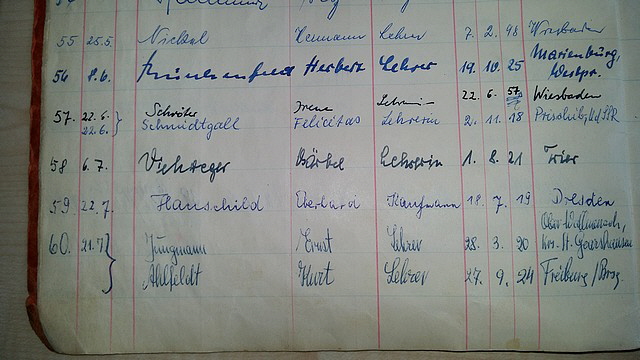 55 25.5. Nickel Hermann Lehrer 7. 2. 98 Wiesbaden
56 8.6. Herbert Lehrer 19. 10. 25 Marienburg, Westpr.
57. 22.6. Schröter Irene 22. 6. Wiesbaden
22.6. Schmidtgall Felicitas Lehrerin 2. 11. 18
58 6.7. Viehweger Bärbel Lehrerin 1. 8. 21 Trier
59 22.7. Hanschild Eberhard Kaufmann 18. 7. 19 Dresden
60. 21.7 Jungmann Ernst Lehrer 28. 3. 20 St. Goarshausen
Ahlfeldt Kurt Lehrer 27. 9. 24 Freiburg/Brsg.